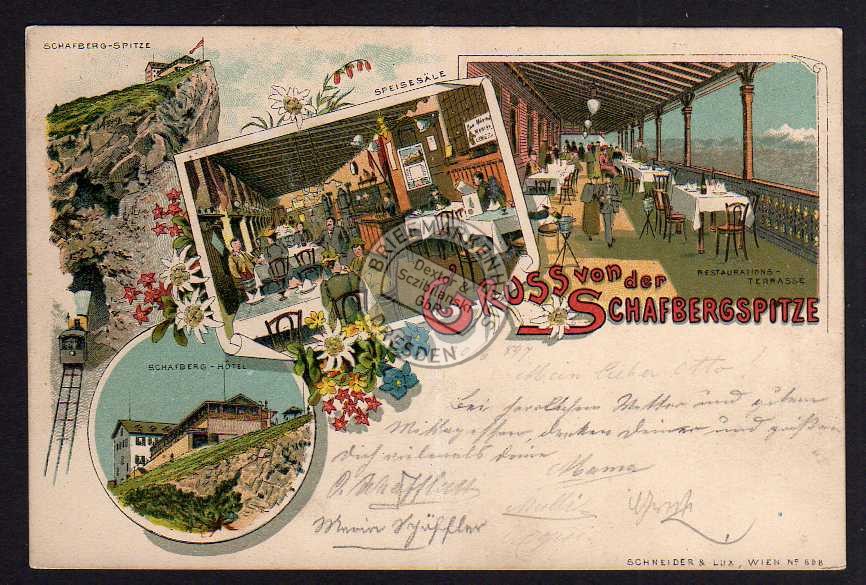 SCHAFBERG-SPITZE
SPEISESÄLE
RESTAURATIONS-
TERRASSE
GRUSS von der
SCHAFBERGSPITZE
SCHAFBERG-HÔTEL
BRIEFMARKENHAUS
Dexter &
GbR
DRESDEN
Mein lieber Otto
Bei herrlichem Wetter und gutem
Mittagessen, denken Deiner und grüßen
Dich vielmals Deine
Mama
Maria Schöffler
SCHNEIDER & LUX, WIEN No 608